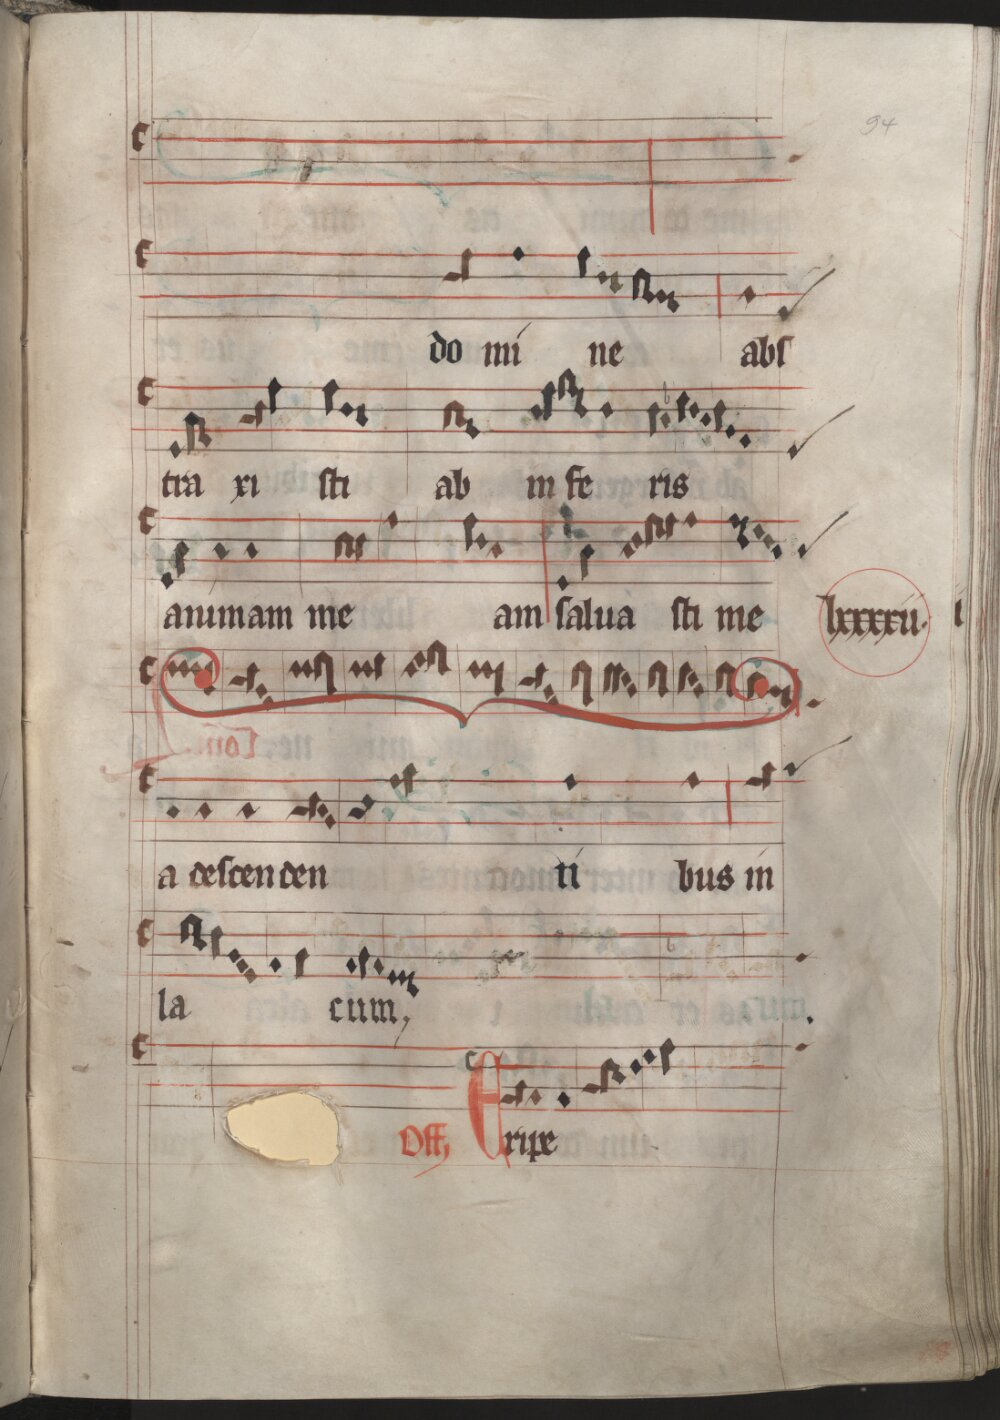 94
do mi ne abs
tra xi sti ab in fe ris
animam me am salua sti me
lxxxxii.
Com.
a descenden ti bus in
la cum,
Off, Eripe